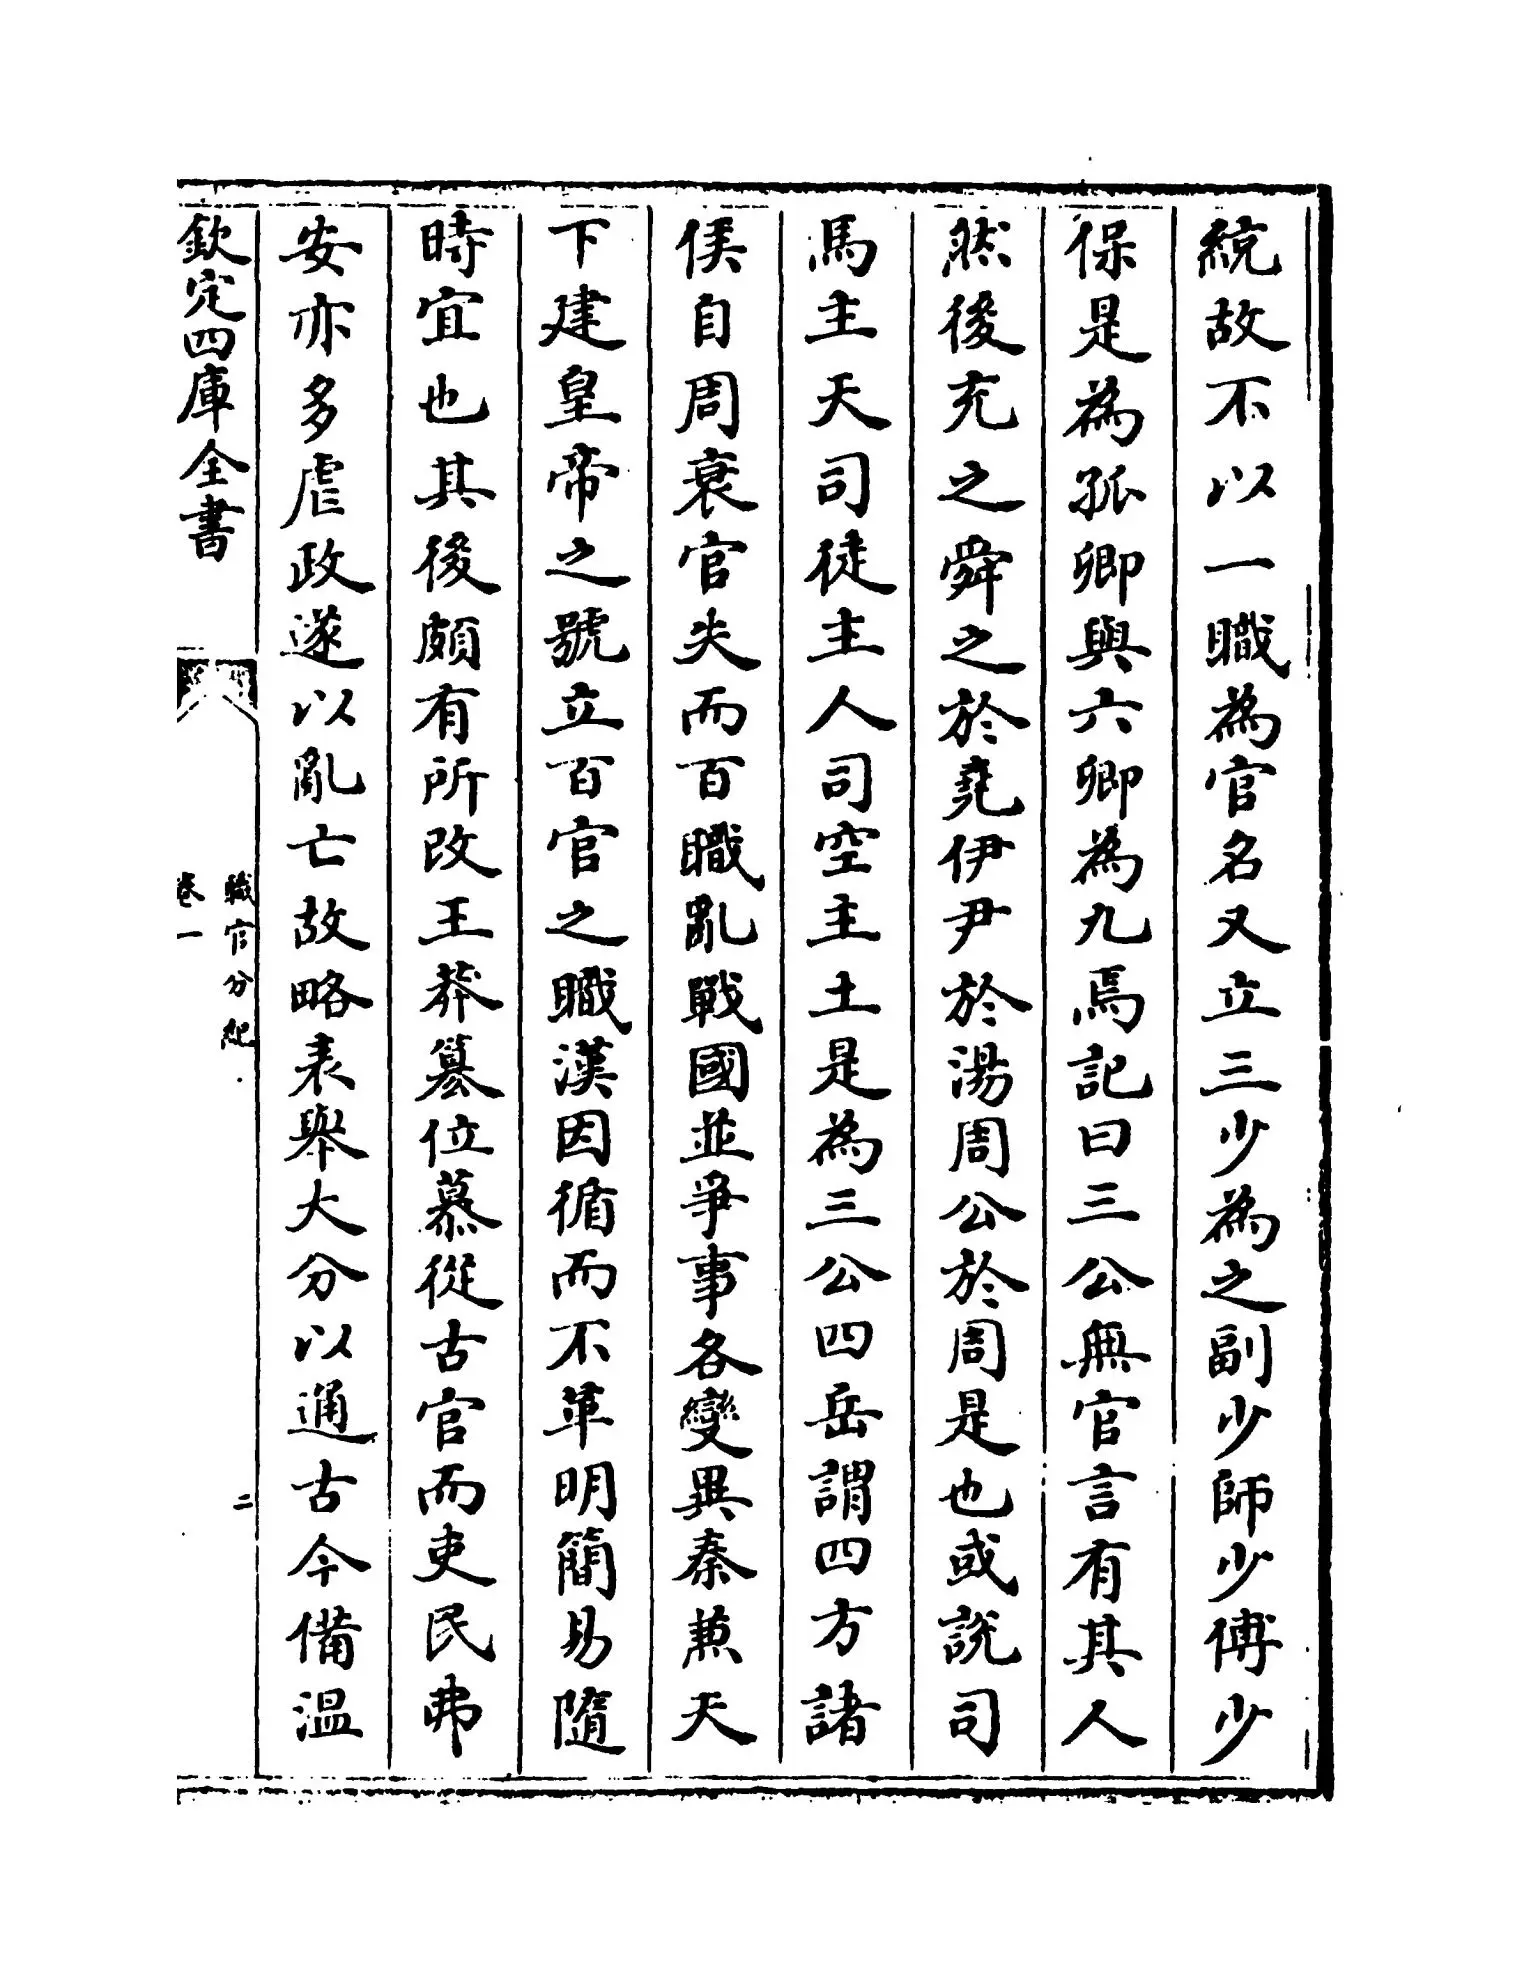 統故不以一職為官名又立三少為之副少師少傅少
保是為孤卿與六卿為九焉記曰三公無官言有其人
然後充之舜之於堯伊尹於湯周公於周是也或說司
馬主天司徒主人司空主土是為三公四岳謂四方諸
侯自周衰官失而百職亂戰國並爭事各變異秦兼天
下建皇帝之號立百官之職漢因循而不革明簡易隨
時宜也其後頗有所改王莽簒位慕從古官而吏民弗
安亦多虐政遂以亂亡故略表舉大分以通古今備溫
欽定四庫全書
職官分紀
卷一
二